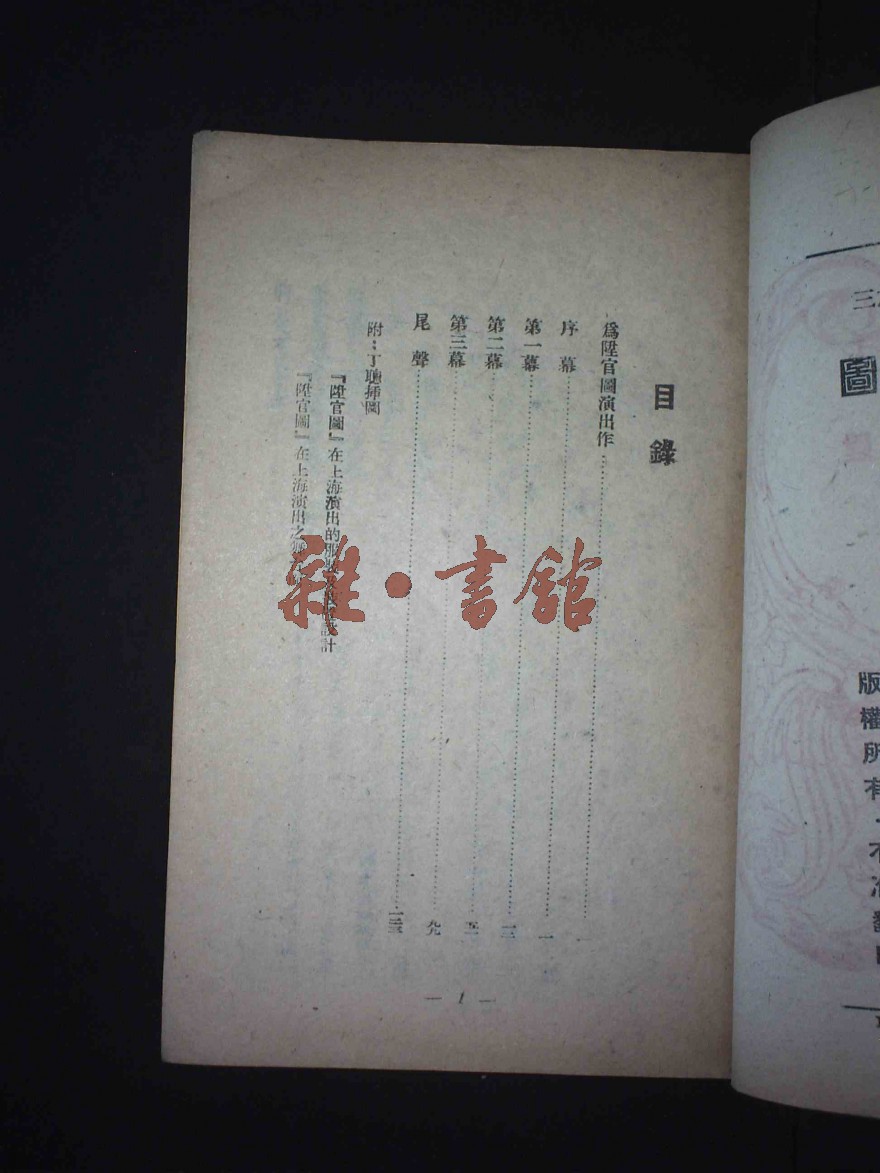 目錄
爲陞官圖演出作……一
序幕……一
第一幕……三
第二幕
第三幕
尾聲……一三三
附：丁聰插圖
『陞官圖』在上海演出的設計
『陞官圖』在上海演出之
雜·書館
— 1 —
圖
版權所有·不准翻印